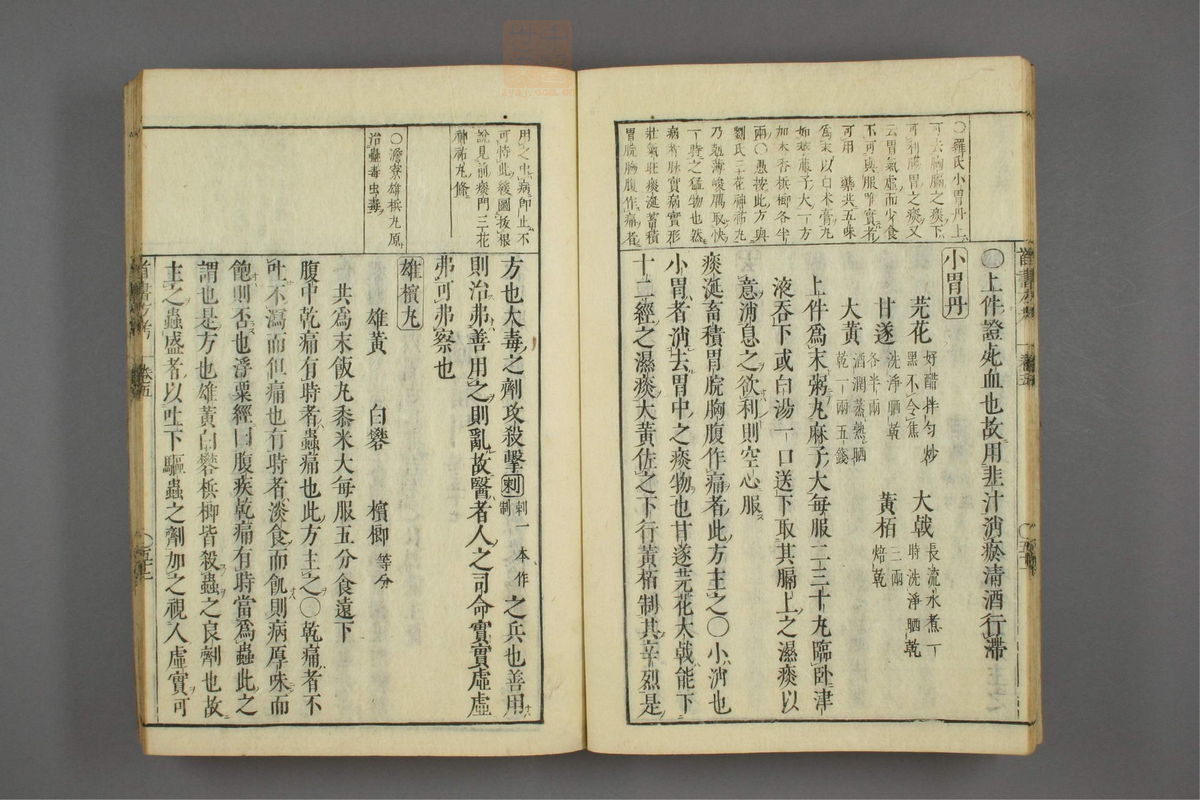 〇羅氏小胃丹上
可去胸膈之痰下
可利腸胃之痰又
云胃氣虛而少食
不可與服唯實者
可用 藥共五味
爲末以白朮膏丸
如蘿蔔子大一方
加木香檳榔各半
兩〇愚按此方與
劉氏三花神祐丸
乃尅薄峻厲取快
一時之猛物也然
病者脉實病實形
壯氣旺痰涎蓄積
胃脘胸腹作痛者
上件證死血也故用韭汁消瘀清酒行滯
小胃丹
芫花 好醋拌勻炒黑不令焦 大戟 長流水煮一時洗淨晒乾
甘遂 洗淨晒乾各半兩 黃栢 三兩焙乾
大黃 酒潤蒸熟晒乾一兩五錢
上件爲末粥丸麻子大每服二三十丸臨卧津
液吞下或白湯一口送下取其膈上之濕痰以
意消息之欲利則空心服
痰涎畜積胃脘胸腹作痛者此方主之〇小消也
小胃者消去胃中之痰物也甘遂芫花大戟能下
十二經之濕痰大黃佐之下行黃栢制其辛烈是
用之中病即止不
可恃此緩圖拔根
說見前痰門三花
神祐丸條
〇澹寮雄檳丸原
治蠱毒虫毒
方也大毒之劑攻殺擊刺 刺一本作制 之兵也善用
則治弗善用之則亂故醫者人之司命實實虛虛
弗可弗察也
雄檳丸
雄黃 白礬 檳榔 等分
共爲末飯丸黍米大每服五分食遠下
腹中乾痛有時者蟲痛也此方主之〇乾痛者不
吐不瀉而但痛也有時者淡食而飢則病厚味而
飽則否也浮粟經曰腹疾乾痛有時當爲蟲此之
謂也是方也雄黃白礬檳榔皆殺蟲之良劑也故
主之蟲盛者以吐下驅蟲之劑加之視人虛實可